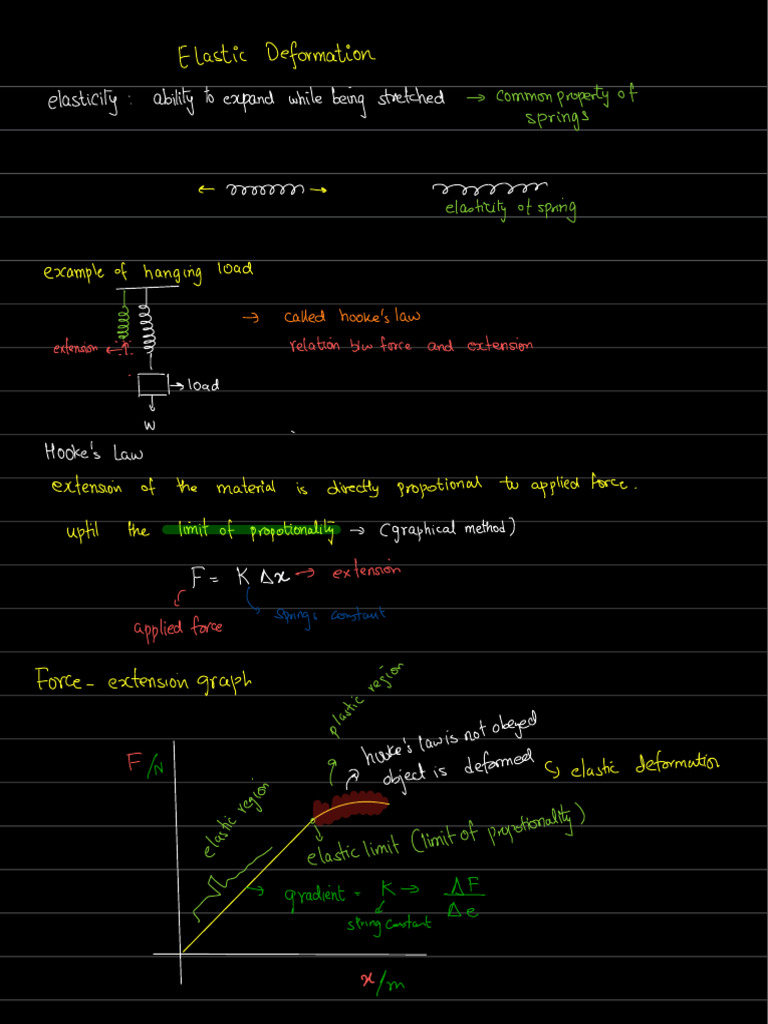 Elastic Deformation
elasticity: ability to expand while being stretched → common property of
springs
← →
elasticity of spring
example of hanging load
→ called hooke's law
extension ←
relation b/w force and extension
→ load
W
Hooke's Law
extension of the material is directly propotional to applied force.
uptil the limit of propotionality → (graphical method)
F = K Δx → extension
springs constant
applied force
Force - extension graph
plastic region
F/N
hooke's law is not obeyed
object is deformed
↳ elastic deformation
elastic region
elastic limit (limit of propotionality)
→ gradient = K → ΔF
Δe
string constant
x/m